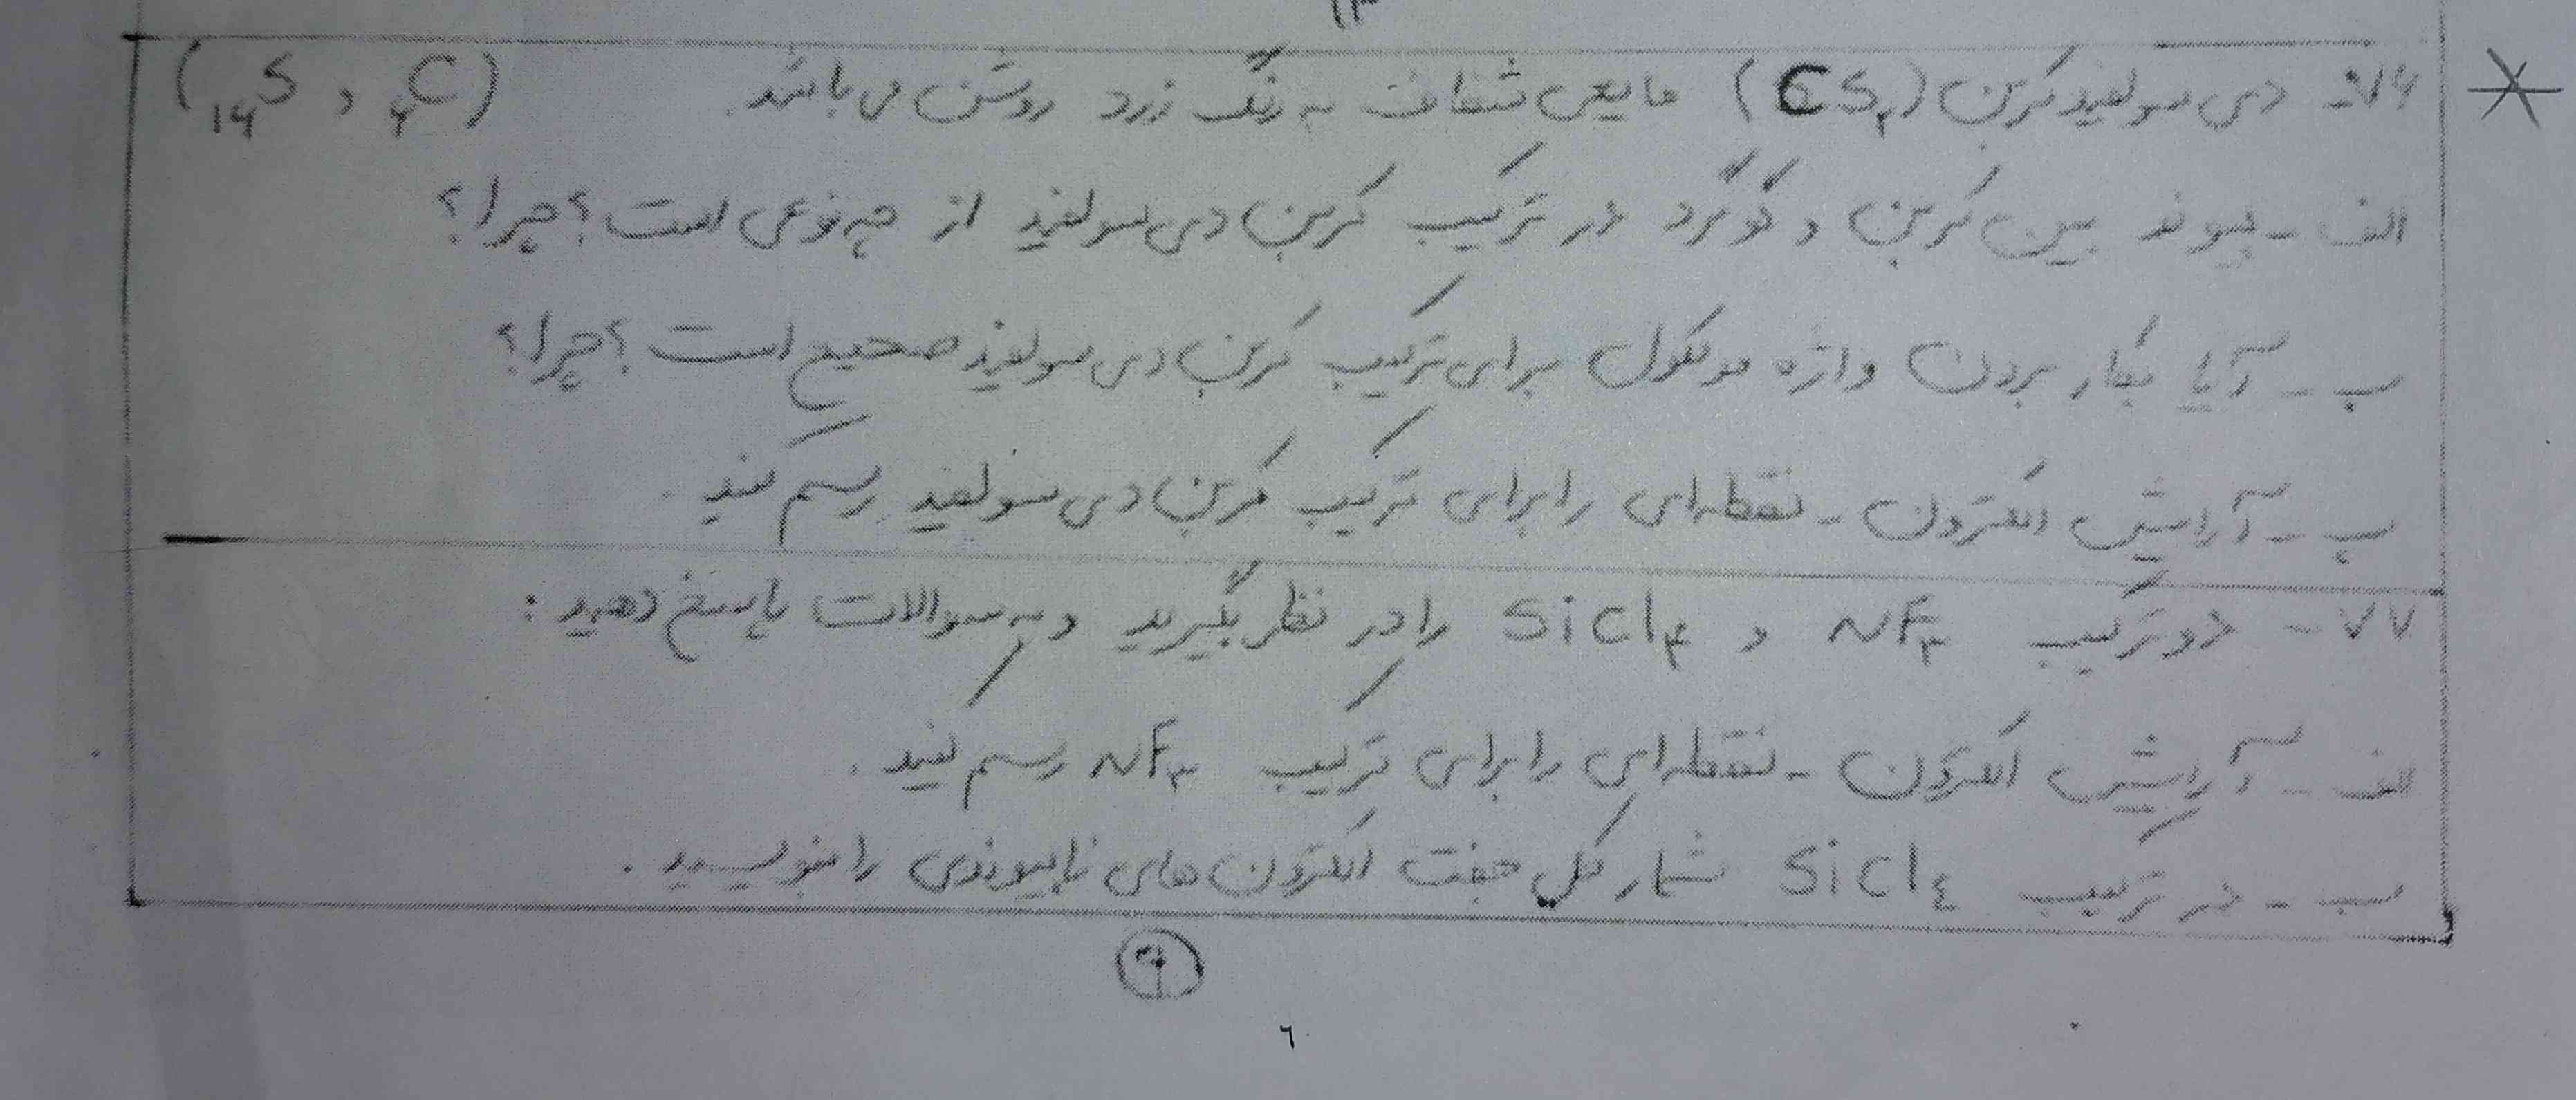 ۱۳
۷۶- دی سولفید کربن (CS۲) مایعی شفاف به رنگ زرد روشن می باشد. (۱۶S , ۶C)
الف - پیوند بین کربن و گوگرد در ترکیب کربن دی سولفید از چه نوعی است؟ چرا؟
ب - آیا بکار بردن واژه مولکول برای ترکیب کربن دی سولفید صحیح است؟ چرا؟
پ - آرایش الکترون - نقطه ای را برای ترکیب کربن دی سولفید رسم کنید.
۷۷ - دو ترکیب NF۳ و SiCl۴ را در نظر بگیرید و به سوالات پاسخ دهید:
الف - آرایش الکترون - نقطه ای را برای ترکیب NF۳ رسم کنید.
ب - در ترکیب SiCl٤ شمار کل جفت الکترون های ناپیوندی را بنویسید.
۶